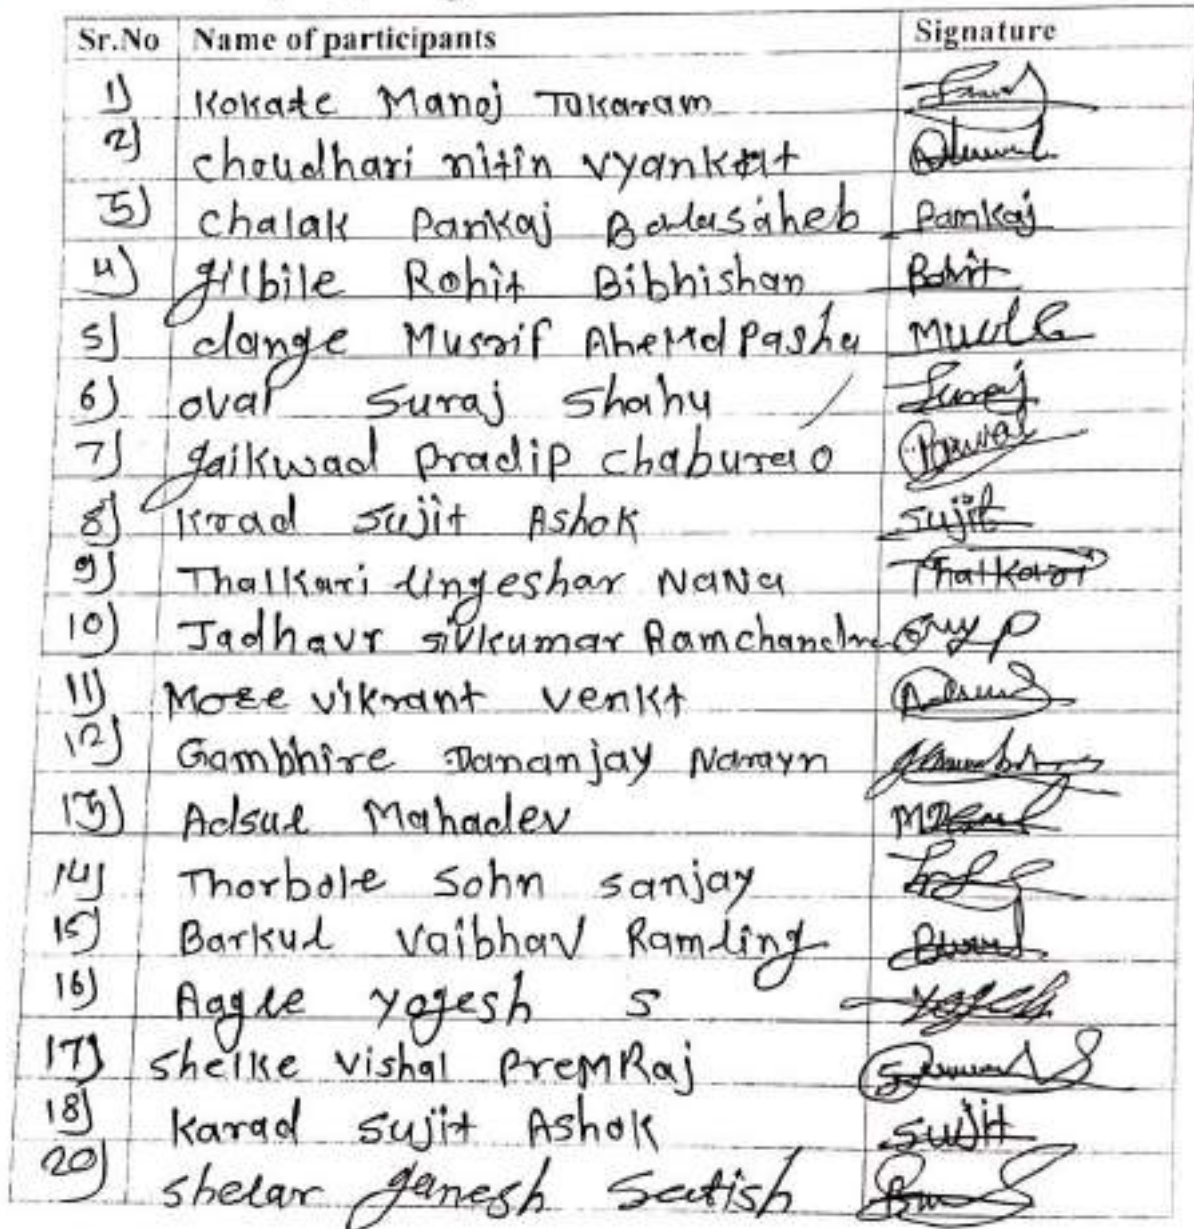 Sr.No Name of participants Signature
1) Kokate Manoj Tukaram
2) choudhari nitin vyankat
3) chalak Pankaj Balasaheb Pankaj
4) gilbile Rohit Bibhishan Rohit
5) dange Musrif AheMdPasha
6) oval Suraj Shahu Suraj
7) gaikwad Pradip chaburao
8) krad Sujit Ashok Sujit
9) Thalkari lingeshar NaNa Thalkari
10) Jadhavr sivkumar Ramchandra
11) More vikrant venkt
12) Gambhire Dananjay Narayn
13) Adsul Mahadev
14) Thorbole Sohn sanjay
15) Barkul Vaibhav Ramling
16) Aagle yogesh S yogesh
17) shelke vishal PreMRaj
18) karad Sujit Ashok Sujit
20) shelar ganesh Satish